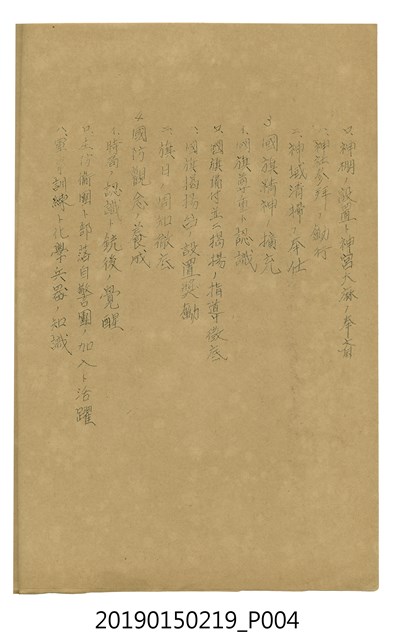 ロ、神棚ノ設置ト神宮大麻ノ奉斎
ハ、神社参拝ノ勵行
ニ、神域清掃ノ奉仕
3、國旗精神ノ擴充
イ、國旗尊重ト認識
ロ、國旗備付並ニ掲揚ノ指導徹底
ハ、國旗掲揚台ノ設置奬勵
ニ、旗日ノ周知徹底
4、國防觀念ノ養成
イ、時局ノ認識ト銃後ノ覺醒
ロ、主防衛團ト部落自警團ノ加入ト活躍
ハ、軍事訓練ト化學兵器ノ知識
20190150219_P004